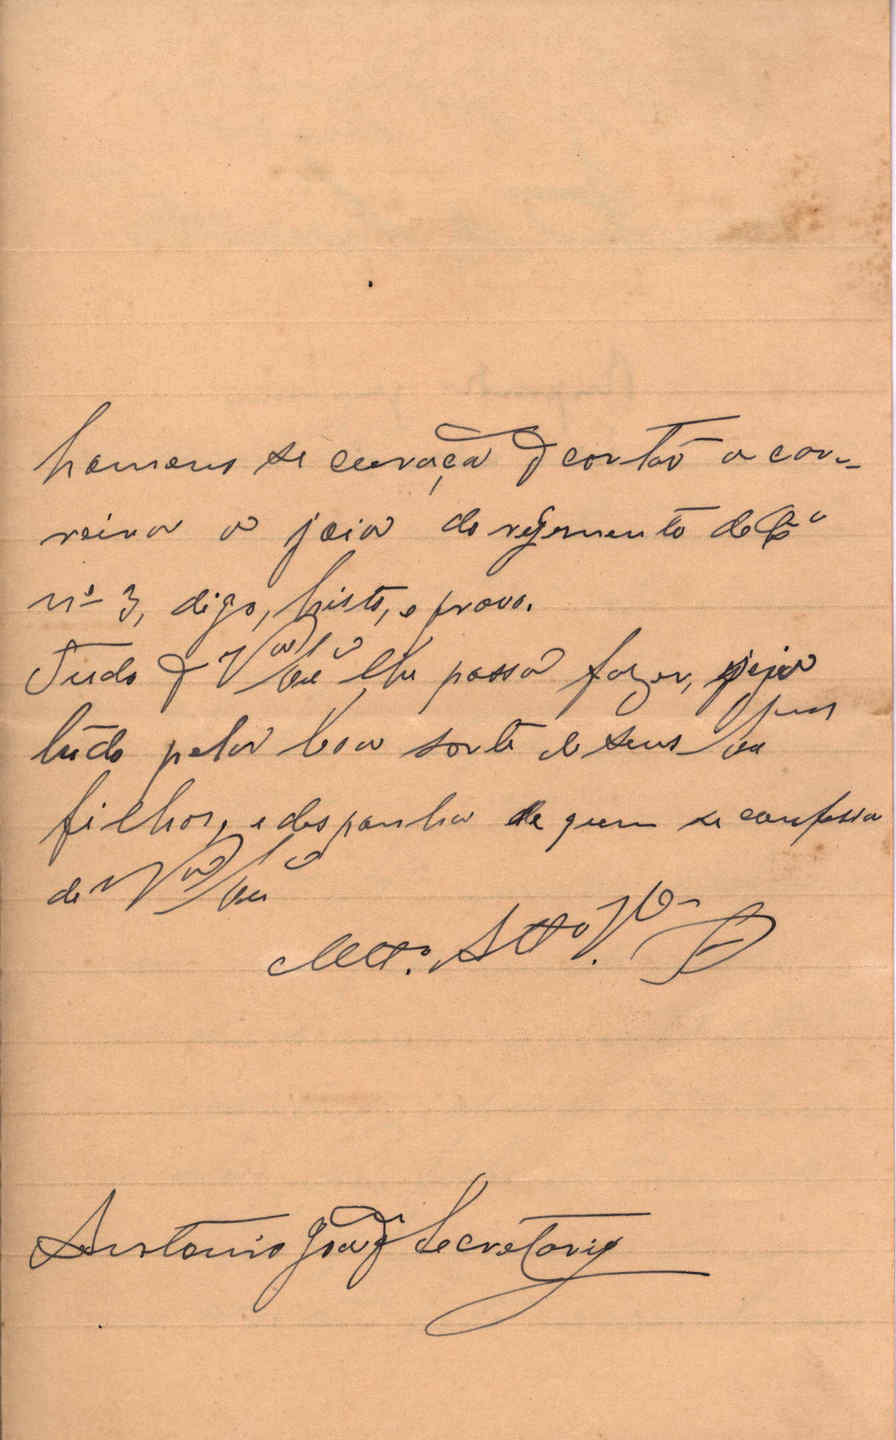 homens se curaça q cortão a car-
reira a joia do regimento de C.ª
nº 3, digo, histo, e provo.
Tudo q V.ª Ex.ª lhe possa fazer, peço
tudo pela boa sorte de seus Ex.mos
filhos, e desponha de quem se confessa
de V.ª Ex.ª
M.tº Att.º V.or
Antonio Secretario